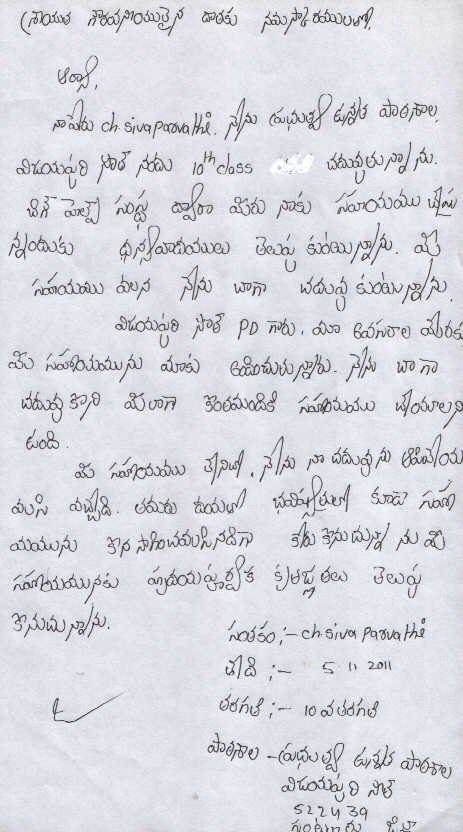 శ్రీయుత గౌరవనీయులైన దాతకు నమస్కారములతో,
ఆర్యా,
నాపేరు ch. siva parvathi. నేను ప్రభుత్వ ఉన్నత పాఠశాల,
విజయపురి సౌత్ నందు 10th class చదువుతున్నాను.
బిగ్ హెల్ప్ సంస్థ ద్వారా మీరు నాకు సహాయము చేస్తు
న్నందుకు ధన్యవాదములు తెలుపు కుంటున్నాను. మీ
సహాయము వలన నేను బాగా చదువు కుంటున్నాను.
విజయపురి సౌత్ PD గారు. మా అవసరాల మేరకు
మీ సహాయమును మాకు అందించుచున్నారు. నేను బాగా
చదువు కొని మీలాగా కొంతమందికి సహాయము చేయాలని
ఉంది.
మీ సహాయము లేనిచో, నేను నా చదువును ఆపివేయ
వలసి వచ్చేది. తమరు దయతో భవిష్యత్తులో కూడా సహా
యమును కొన సాగించవలసినదిగా కోరు కొనుచున్నా ను మీ
సహాయమునకు హృదయపూర్వక కృతజ్ఞతలు తెలుపు
కొనుచున్నాను.
సంతకం :- ch. siva parvathi
తేది :- 5 11 2011
తరగతి :- 10 వ తరగతి
పాఠశాల - ప్రభుత్వ ఉన్నత పాఠశాల
విజయపురి సౌత్
522439
గుంటూరు జిల్లా